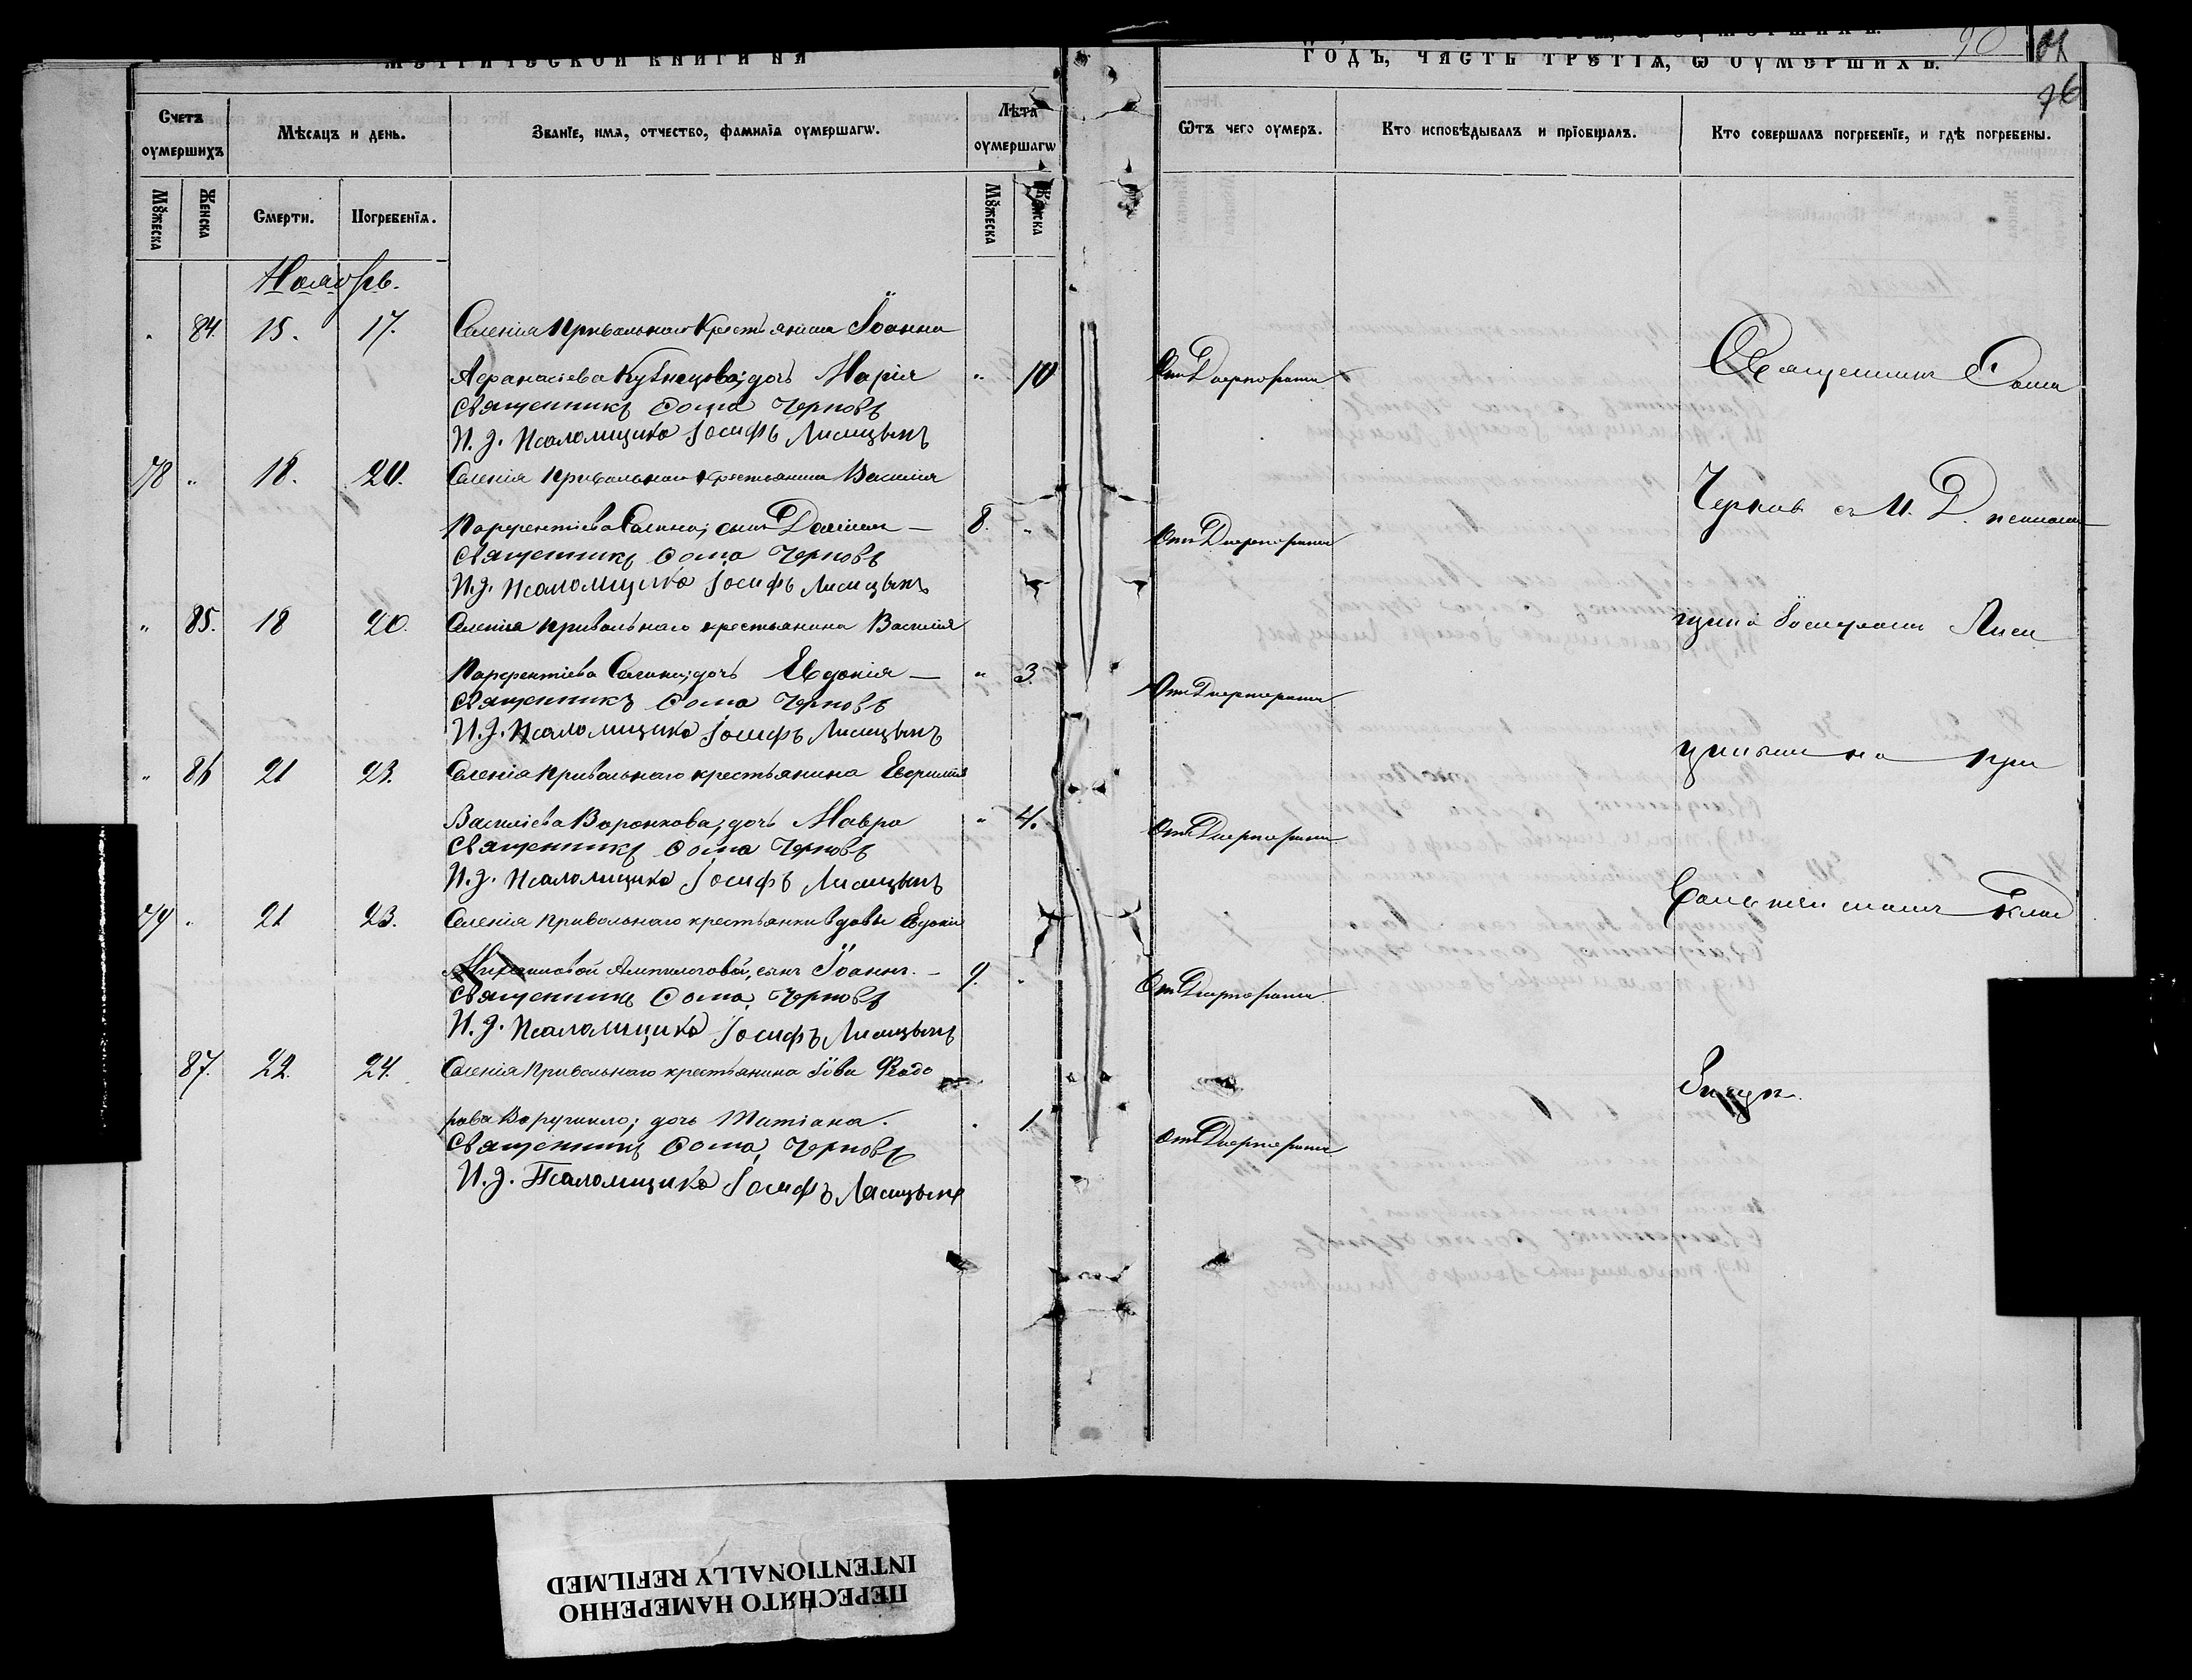 МЕТРИЧЕСКОЙ КНИГИ НА
ГОДЪ, ЧАСТЬ ТРЕТІѦ, Ѡ ОУМЕРШИХЪ.
90
76
Счетъ оумершихъ
Мѣсяцъ и день.
Званїе, имѧ, отчество, фамилїѧ оумершагѡ.
Лѣта оумершагѡ
Ѿтъ чего оумеръ.
Кто исповѣдывалъ и прїобщалъ.
Кто совершалъ погребенїе, и гдѣ погребены.
Мѫжеска
Женска
Смерти.
Погребенїѧ.
Мѫжеска
Женска
Ноябрь.
" 84. 15. 17. Селенія Привольнаго Крестьянина Іоанна
Афанасіева Кузнецова; дочь Марія " 10 Отъ Дифтерита Священникъ Ѳома
Священникъ Ѳома Черновъ
И. д. Псаломщика Іосифъ Лисицынъ
78 " 18. 20. Селенія Привольнаго крестьянина Василія
Парфентіева Сагина; сынъ Даніилъ — 8. " Отъ Дифтерита Черновъ съ И. Д. псалом
Священникъ Ѳома Черновъ
И. д. Псаломщика Іосифъ Лисицынъ
" 85. 18 20. Селенія Привольнаго крестьянина Василія щика Іосифомъ Лиси
Парфентіева Сагина; дочь Евдокія — " 3. Отъ Дифтерита
Священникъ Ѳома Черновъ
И. д. Псаломщика Іосифъ Лисицынъ
" 86 21 23. Селенія Привольнаго крестьянина Ефрема цынымъ на При
Василіева Воронкова; дочь Мавра " 4. Отъ Дифтерита
Священникъ Ѳома Черновъ
И. д. Псаломщика Іосифъ Лисицынъ
79 " 21 23. Селенія Привольнаго крестьянки вдовы Евдокіи вольненскомъ клад
сынъ Іоаннъ. — 9. " Отъ Дифтерита
Священникъ Ѳома Черновъ
И. д. Псаломщика Іосифъ Лисицынъ
87. 22. 24. Селенія Привольнаго крестьянина Іова Ѳеодо
рова дочь Татіана. " 1. Отъ Дифтерита
Священникъ Ѳома Черновъ
И. д. Псаломщика Іосифъ Лисицынъ
ПЕРЕСНЯТО НАМЕРЕННО
INTENTIONALLY REFILMED